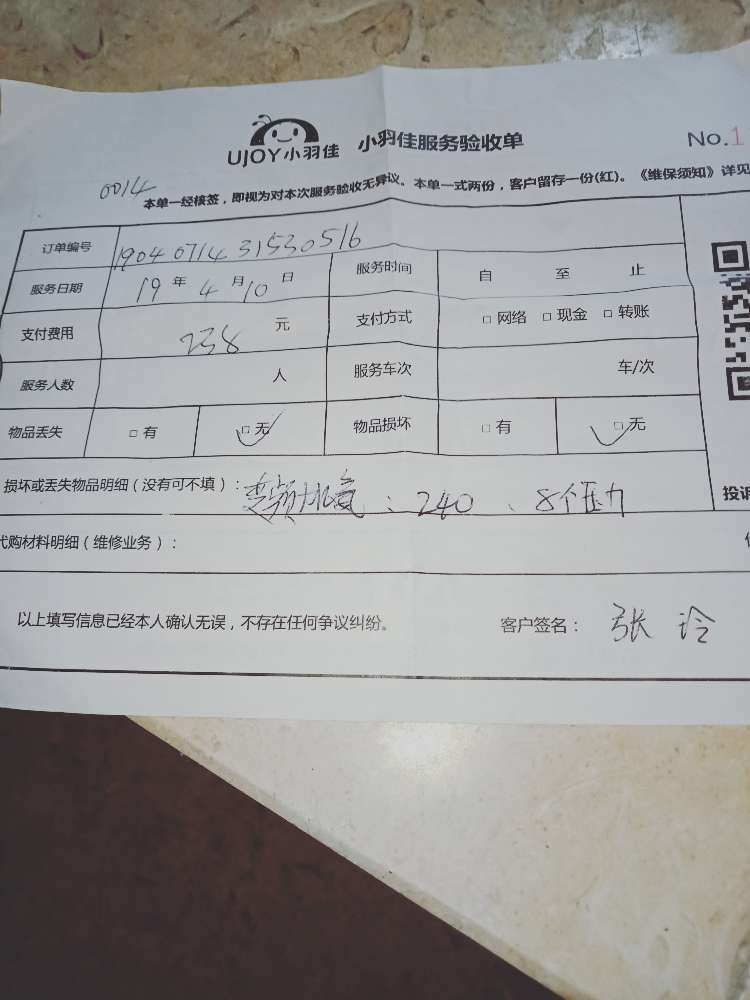 UJOY小羽佳 小羽佳服务验收单 No.1
0014
本单一经核签，即视为对本次服务验收无异议。本单一式两份，客户留存一份(红)。《维保须知》详见
订单编号 1904071431530516
服务日期 19 年 4 月 10 日 服务时间 自 至 止
支付费用 238 元 支付方式 □ 网络 □ 现金 □ 转账
服务人数 人 服务车次 车/次
物品丢失 □ 有 □ 无 物品损坏 □ 有 □ 无
损坏或丢失物品明细（没有可不填）：变频加氟：240、8个压力
投诉
代购材料明细（维修业务）：
以上填写信息已经本人确认无误，不存在任何争议纠纷。 客户签名： 张玲